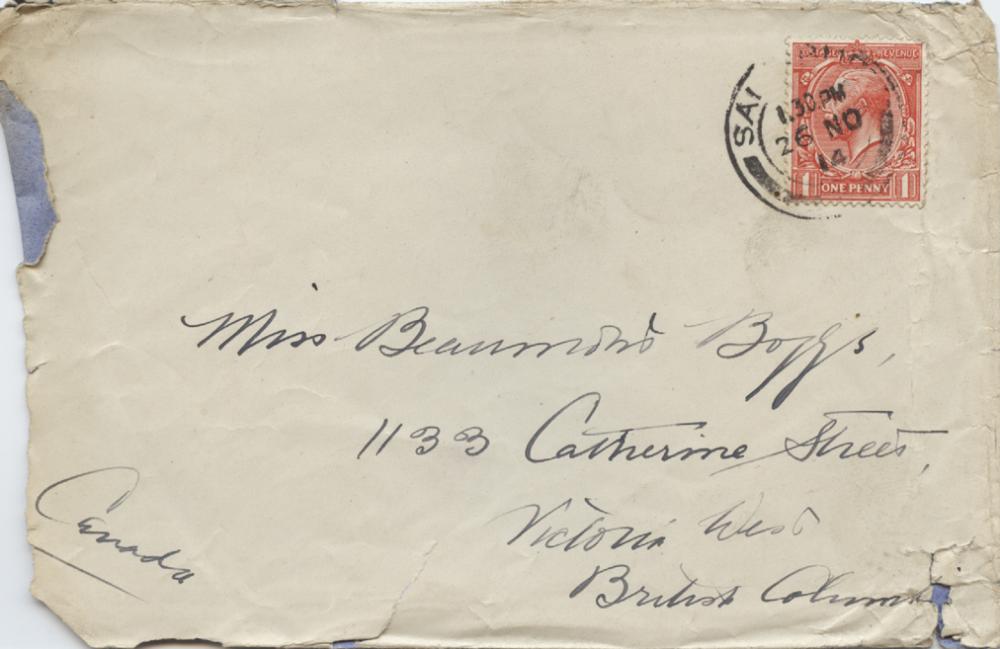 REVENUE
SAI
1.30 PM
26 NO
14
1 ONE PENNY 1
Miss Beaumont Boggs,
1133 Catherine Street,
Victoria West
British Colum
Canada